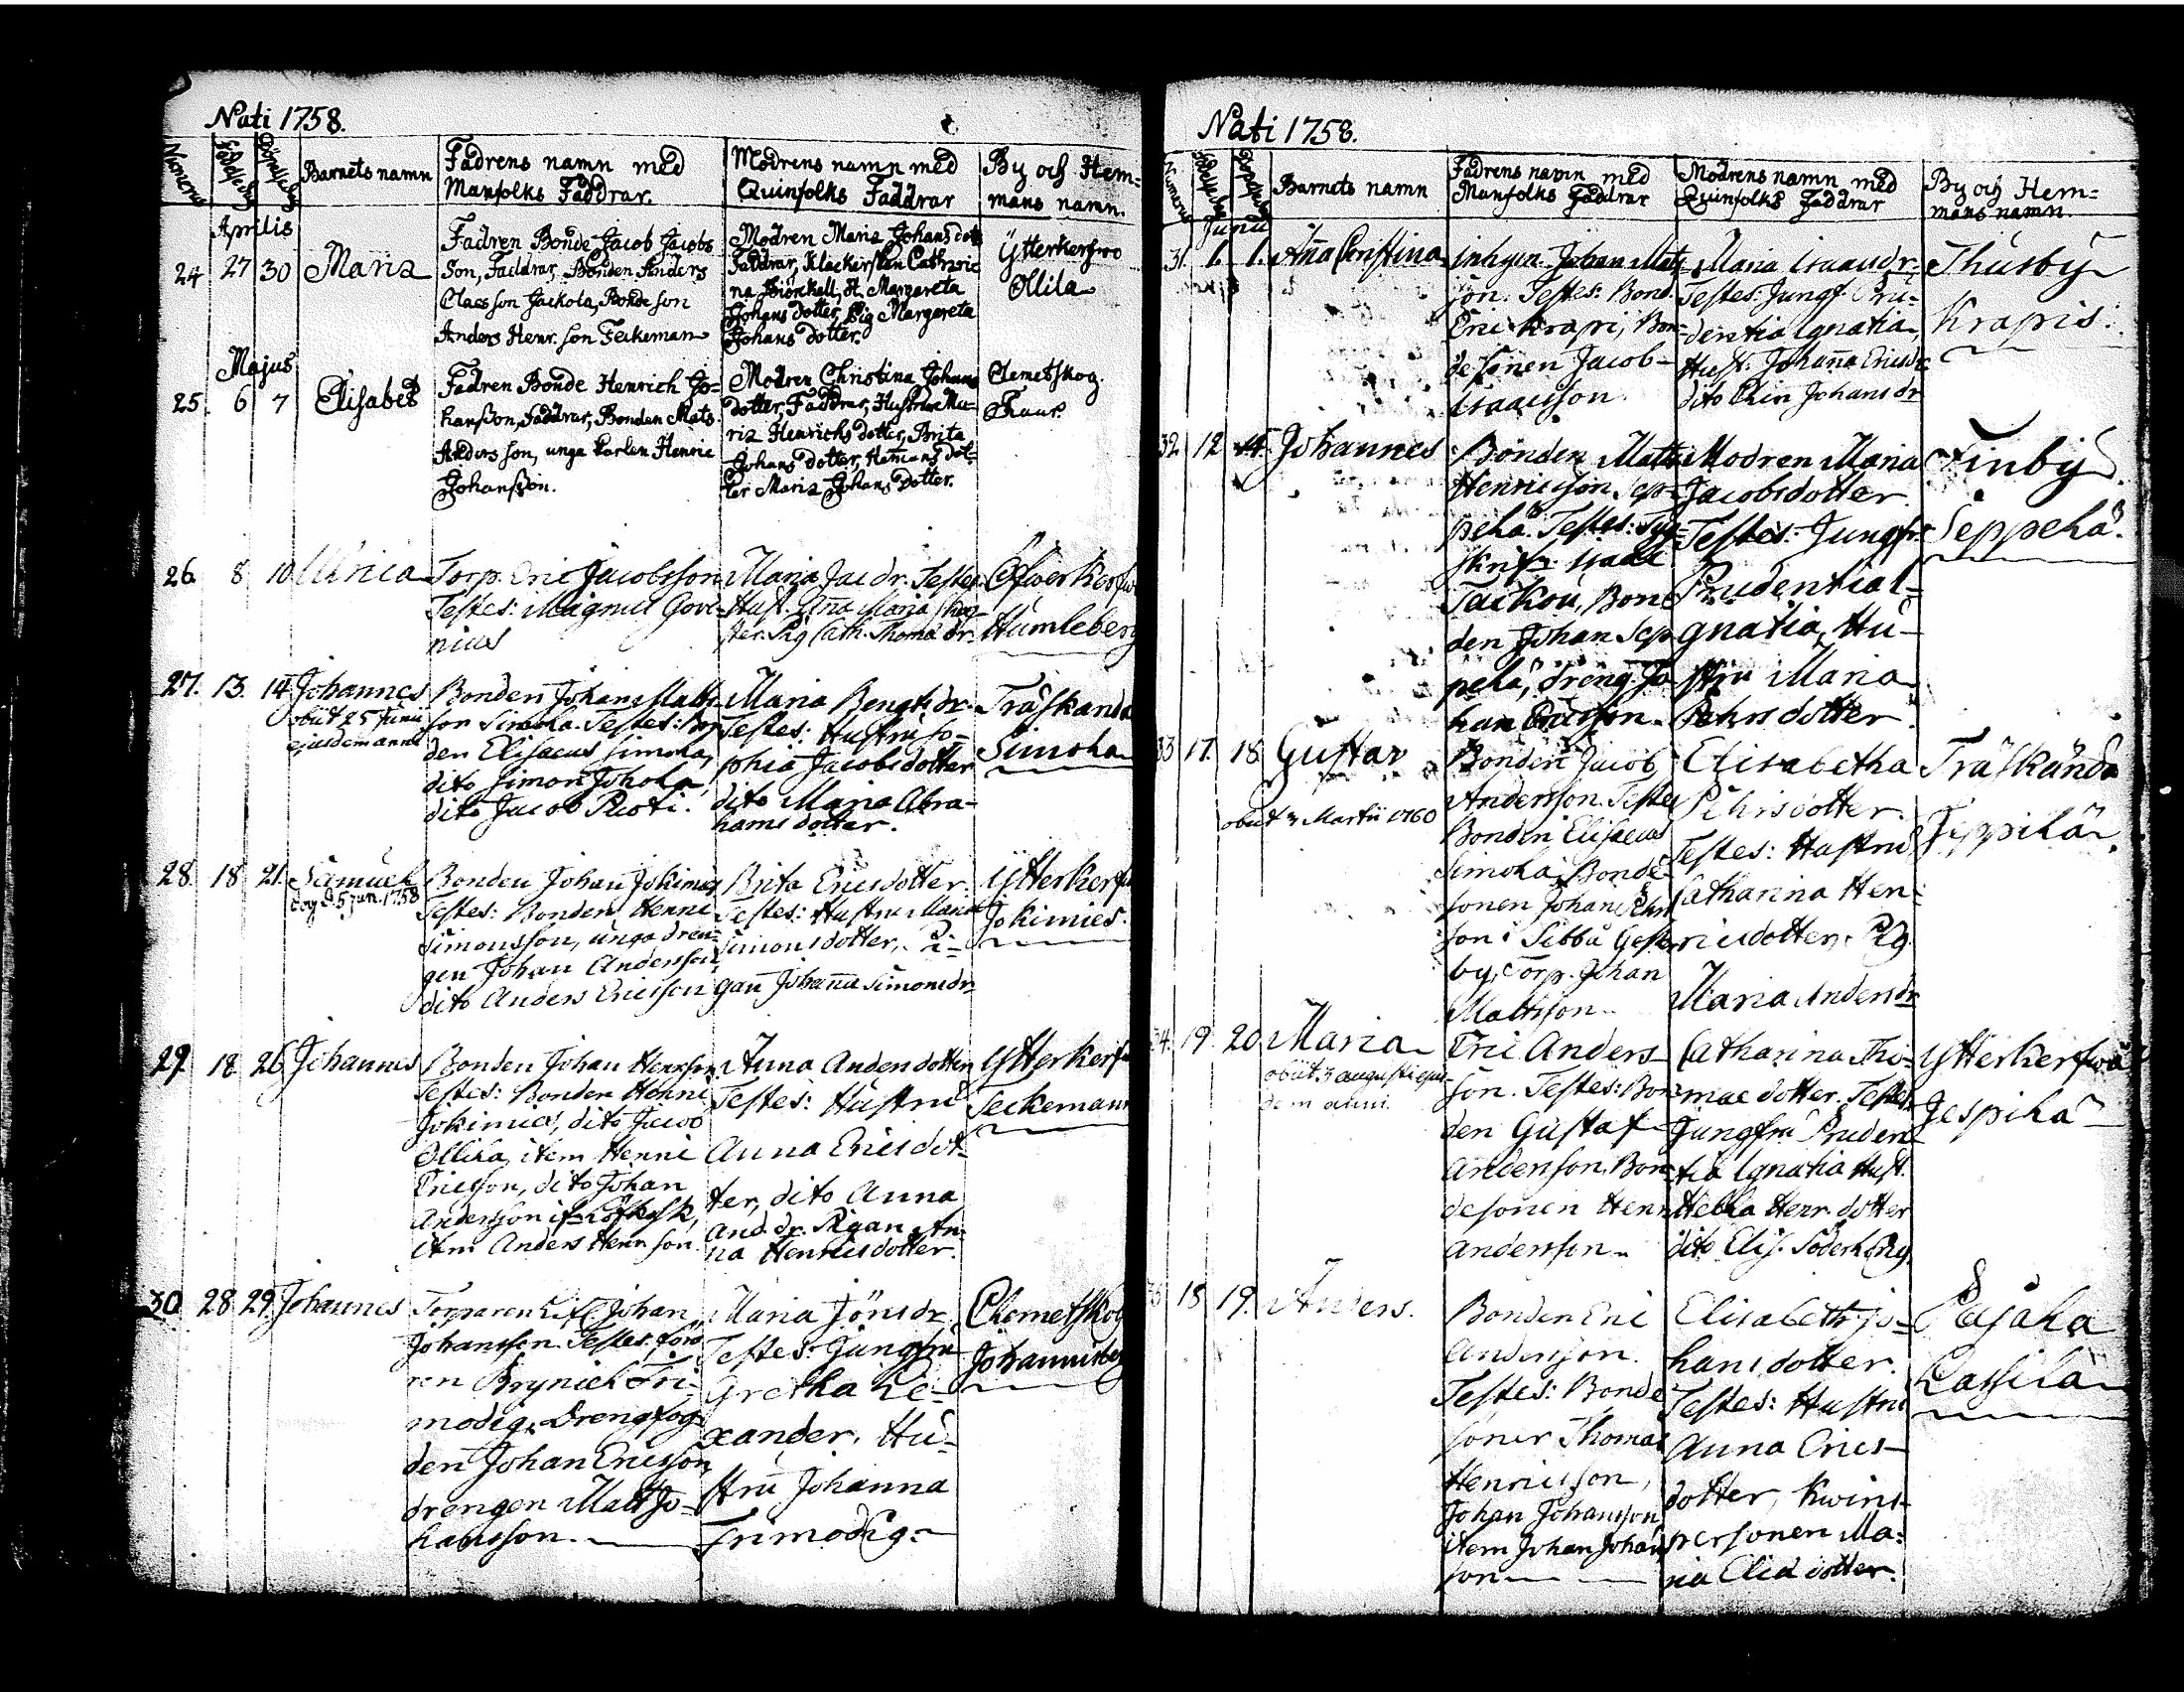 Nati 1758.
Numerus
Födelsedag
Döpelsedag
Barnets namn
Fadrens namn med
Manfolks Faddrar.
Modrens namn med
Quinfolks Faddrar
By och Hem=
mans namn.
Aprilis
24 27 30 Maria
Fadren Bonde Jacob Jacobs
son, Faddrar, Bonden Anders
Claesson Jackola, Bondeson
Anders Henr. son Teckeman
Modren Maria Johans dott
Faddrar, Klackarskan Cathari
na Biörckell, H. Margareta
Johans dotter, Pig Margareta
Johans dotter.
Ytterkerswo
Ollila
Majus
25. 6 7 Elisabet
Fadren Bonde Henrich Jo=
hansson, Faddrar, Bonden Mats
Anders son, unga karlen Henric
Johansson.
Modren Christina Johans
dotter, Faddrar, Hustrur Ma=
ria Henrichs dotter, Brita
Johans dotter, Hemans dot=
ter Maria Johans dotter.
Clemetskog.
26. 8 10 Ulrica
Torp. Eric Jacobsson
Testes: Magnus Gove-
nius
Maria Jac dr. Testes
Hust. Anna Maria
Pig Cath. Thomæ dr.
Öfwerkersw
Humleberg
27. 13. 14 Johannes
obiit 25 Junii
ejusdem anni
Bonden Johan Matts
son Simola. Testes: Bon
den Elisaeus Simola,
dito Simon Johola,
dito Jacob Puoti.
Maria Bengts dr.
Testes: Hustru So-
phia Jacobsdotter
dito Maria Abra-
hams dotter.
Träskanda
Simola
28. 18 21. Samuel
dog d. 5 jun. 1758
Bonden Johan Jokimies
Testes: Bonden Henric
Simonsson, unga dren=
gen Johan Andersson,
dito Anders Ericsson
Brita Ericsdotter.
Testes: Hustru Maria
Simons dotter, Pi-
gan Johanna Simonsdr
Ytterkersw
Jokimies.
29. 18 26 Johannes
Bonden Johan Henrsson
Testes: Bonden Henric
Jokimies, dito Jacob
Ollila, item Henric
Ericsson, dito Johan
Andersson
item Anders Henr son
Anna Andersdotter
Testes: Hustru
Anna Ericsdot-
ter, dito Anna
And. dr. Pigan An-
na Henricsdotter.
Ytterkersw
Teckemann
30. 28 29. Johannes
Torparen Johan
Johansson. Testes: före
ren Brynich Tri-
modig, Drengfog
den Johan Ericsson
drengen Matt Jo-
hansson.
Maria Jönsdr
Testes: Jungfru
Gretha Le-
xander, Hu-
stru Johanna
Trimodig.
Clemetskog
Johannisberg
Nati 1758.
Numerus
Födelsedag
Döpelsedag
Barnets namn
Fadrens namn med
Manfolks Faddrar
Modrens namn med
Quinfolks Faddrar
By och Hem=
mans namn.
Junii
31. 1. 1. Anna Christina
Inhyses. Johan Mats
son. Testes: Bond.
Eric Krapi, Bon-
desonen Jacob
Isaacsson.
Maria Isaacsdr.
Testes: Jungf. Pru-
dentia Ignatia,
Hust. Johanna Ericsdr
dito Chirs Johansdr
Thusby
Krapis.
32. 12 14. Johannes
Bonden Matts
Henricsson Sep-
pelä. Testes:
Taikou, Bon
den Johan Sep
pelä, dreng Jo
han Ericsson.
Modren Maria
Jacobsdotter
Testes: Jungfr.
Prudentia I-
gnatia, Hu-
stru Maria
Pehrsdotter.
Finby
Seppelä.
33 17. 18. Gustav
obiit 3 Martii 1760
Bonden Jacob
Andersson. Testes
Bonden Elisaeus
Simola, Bonde-
sonen Johan Pehrs
son i Sibbå Gester
by, Torp. Johan
Mattsson.
Elisabetha
Pehrsdotter.
Testes: Hustru
Catharina Hen-
ricsdotter, Pig.
Maria Andersdr
Träskända
Teppilä.
34. 19 20 Maria
obiit 3 augusti ejus-
dem anni.
Eric Anders
son. Testes: Bon-
den Gustaf
Andersson, Bon
desonen Henr
Andersson.
Catharina Tho-
mae dotter. Testes:
Jungfru Pruden
tia Ignatia Hust.
Helka Henr. dotter
dito Elis. Söderberg.
Ytterkerswå
Jespilä
35 18 19. Anders.
Bonden Eric
Andersson.
Testes: Bonde
söner Thomas
Henricsson,
Johan Johansson
item Johan Johans
son
Elisabeth Jo-
hansdotter.
Testes: Hustru
Anna Erics-
dotter, Kwins-
personen Ma-
ria Elia dotter.
Pajala
Lassila